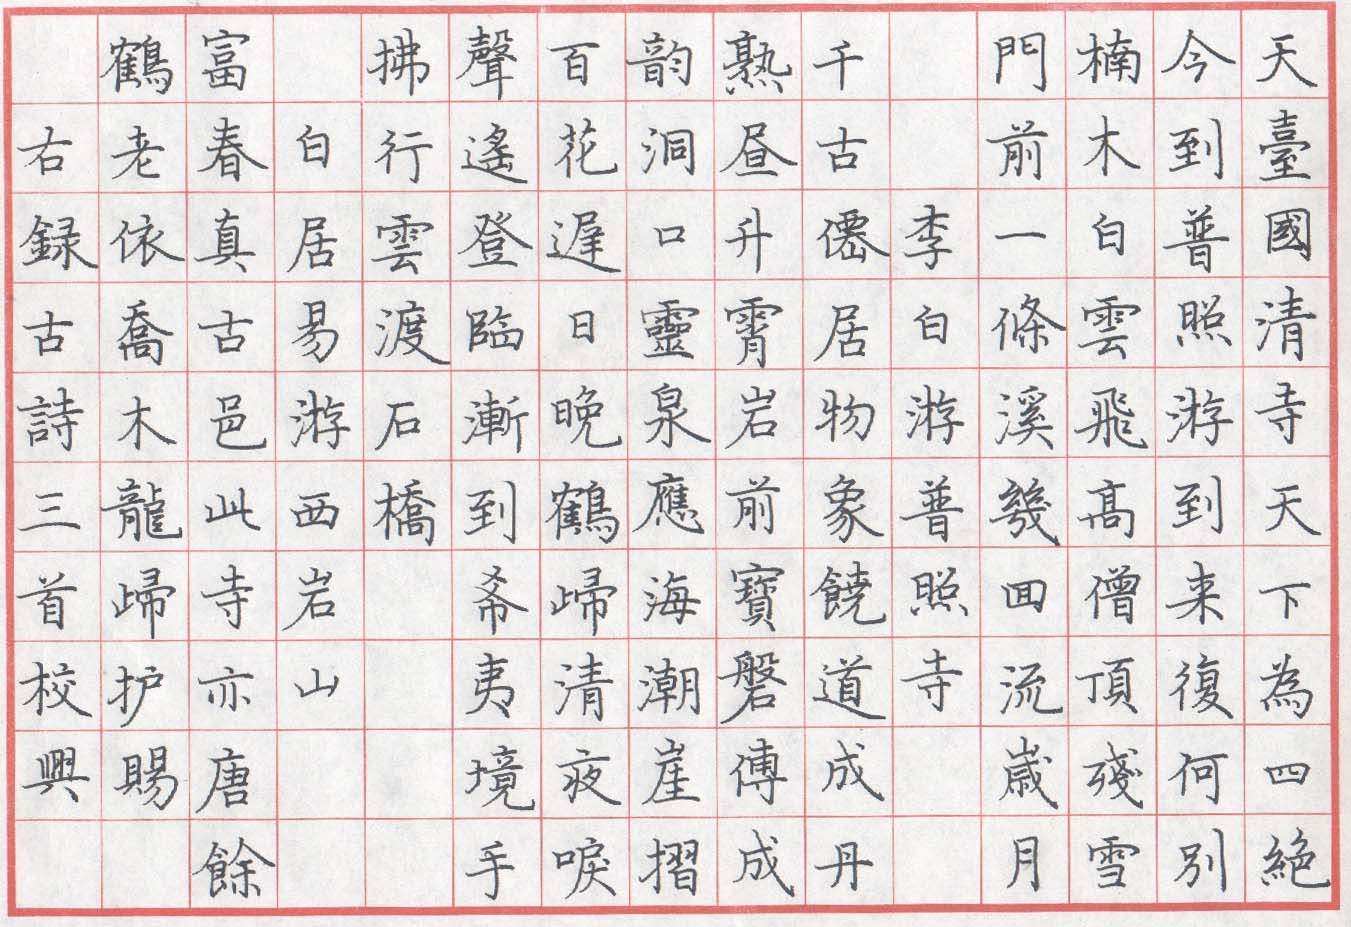 天臺國清寺天下為四絕
今到普照游到来復何別
楠木白雲飛高僧頂殘雪
門前一條溪幾囬流歲月
李白游普照寺
千古僊居物象饒道成丹
熟昼升霄岩前寶磐傳成
韵洞口靈泉應海潮崖摺
百花遲日晚鶴歸清夜唳
聲遙登臨漸到希夷境手
拂行雲渡石橋
白居易游西岩山
富春真古邑此寺亦唐餘
鶴老依喬木龍歸护賜
右録古詩三首校興